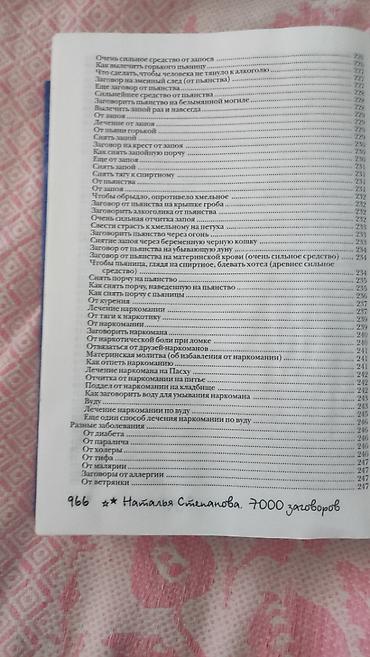 Очень сильное средство от запоев 226
Как вылечить горького пьяницу 226
Что сделать, чтобы человека не тянуло к алкоголю 227
Заговор на змеиный след (от пьянства) 227
Еще заговор от пьянства 227
Сильнейшее средство от пьянства 228
Заговорить пьянство на безымянной могиле 228
Вылечить запой раз и навсегда
От запоя 229
Лечение от запоя 229
От пьяни горькой 229
Снять запой
Заговор на крест от запоя 230
Как снять запойную порчу 230
Еще от запоя 230
Снять запой 231
Снять тягу к спиртному 231
От пьянства 231
От запоя 231
Чтобы обрыдло, опротивело хмельное 232
Заговор от пьянства на крышке гроба 232
Заговорить алкоголика от пьянства 232
Очень сильная отчитка запоя 232
Свести страсть к хмельному на петуха 233
Заговорить пьянство через огонь 233
Снятие запоя через беременную черную кошку 233
Заговор от пьянства на убывающую луну 234
Заговор от пьянства на материнской крови (очень сильное средство) 234
Чтобы пьяница, глядя на спиртное, блевать хотел (древнее сильное
средство) 234
Снять порчу на пьянство 235
Как снять порчу, наведенную на пьянство 235
Как снять порчу с пьяницы 236
От курения 237
Лечение наркомании 237
От тяги к наркотику 239
От наркомании 239
Заговорить наркомана 240
От наркотической боли при ломке 240
Отвязаться от друзей-наркоманов 241
Материнская молитва (об избавления от наркомании) 241
Как отпеть наркоманию 241
Лечение наркомана на Пасху 241
Отчитка от наркомании на питье 242
Поддел от наркомании на кладбище 242
Как заговорить воду для умывания наркомана 243
Вуду 243
Лечение наркомании по вуду 245
Еще один способ лечения наркомании по вуду 246
Разные заболевания 246
От диабета 246
От паралича 246
От холеры 246
От тифа 247
От малярии 247
Заговоры от аллергии 247
От ветрянки 247
966 ★★ Наталья Степанова. 7000 заговоров